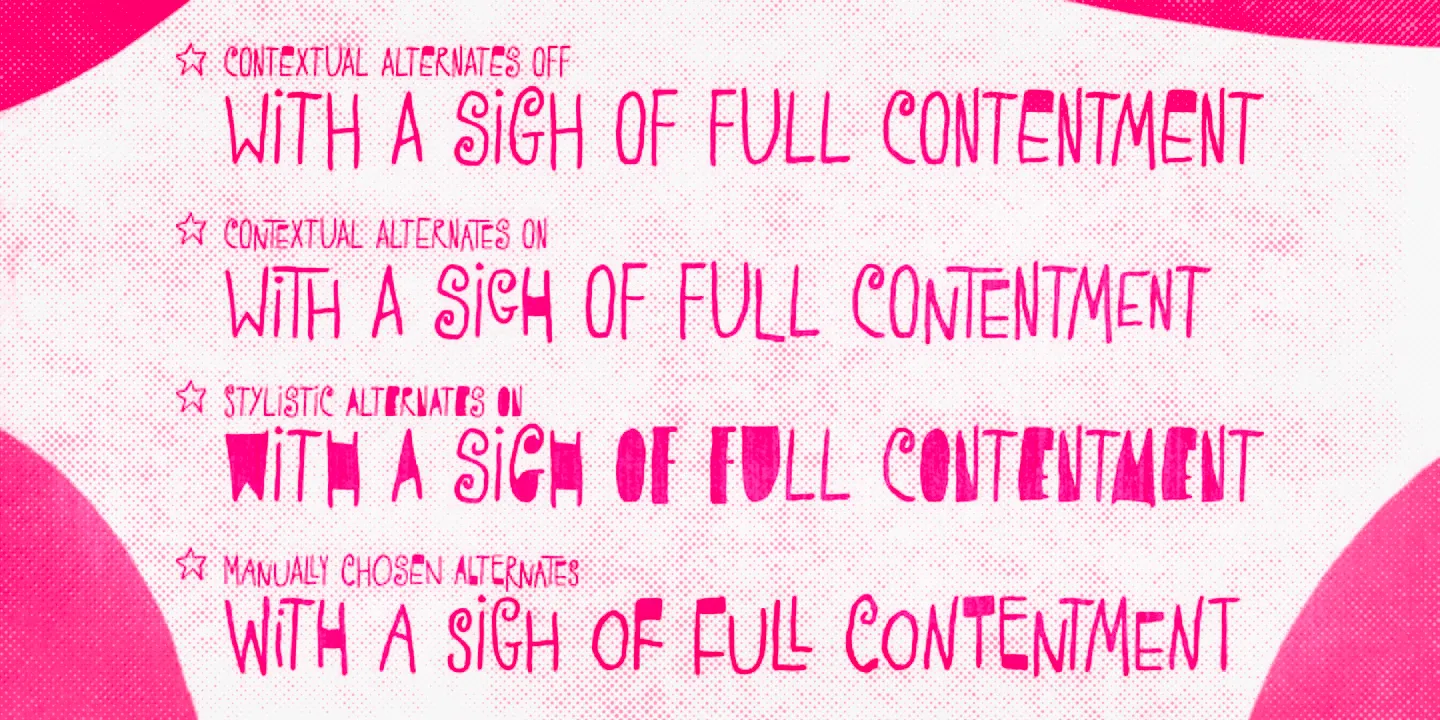 CONTEXTUAL ALTERNATES OFF
WiTH A SiGH OF FULL CONTENTMENT
CONTEXTUAL ALTERNATES ON
WiTH A SiGH OF FULL CONTENTMENT
STYLiSTiC ALTERNATES ON
WiTH A SiGH OF FULL CONTENTMENT
MANUALLY CHOSEN ALTERNATES
WiTH A SiGH OF FULL CONTENTMENT